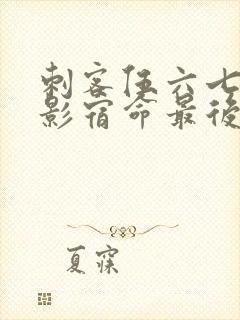 刺客伍六七
影宿命最後
夏寐